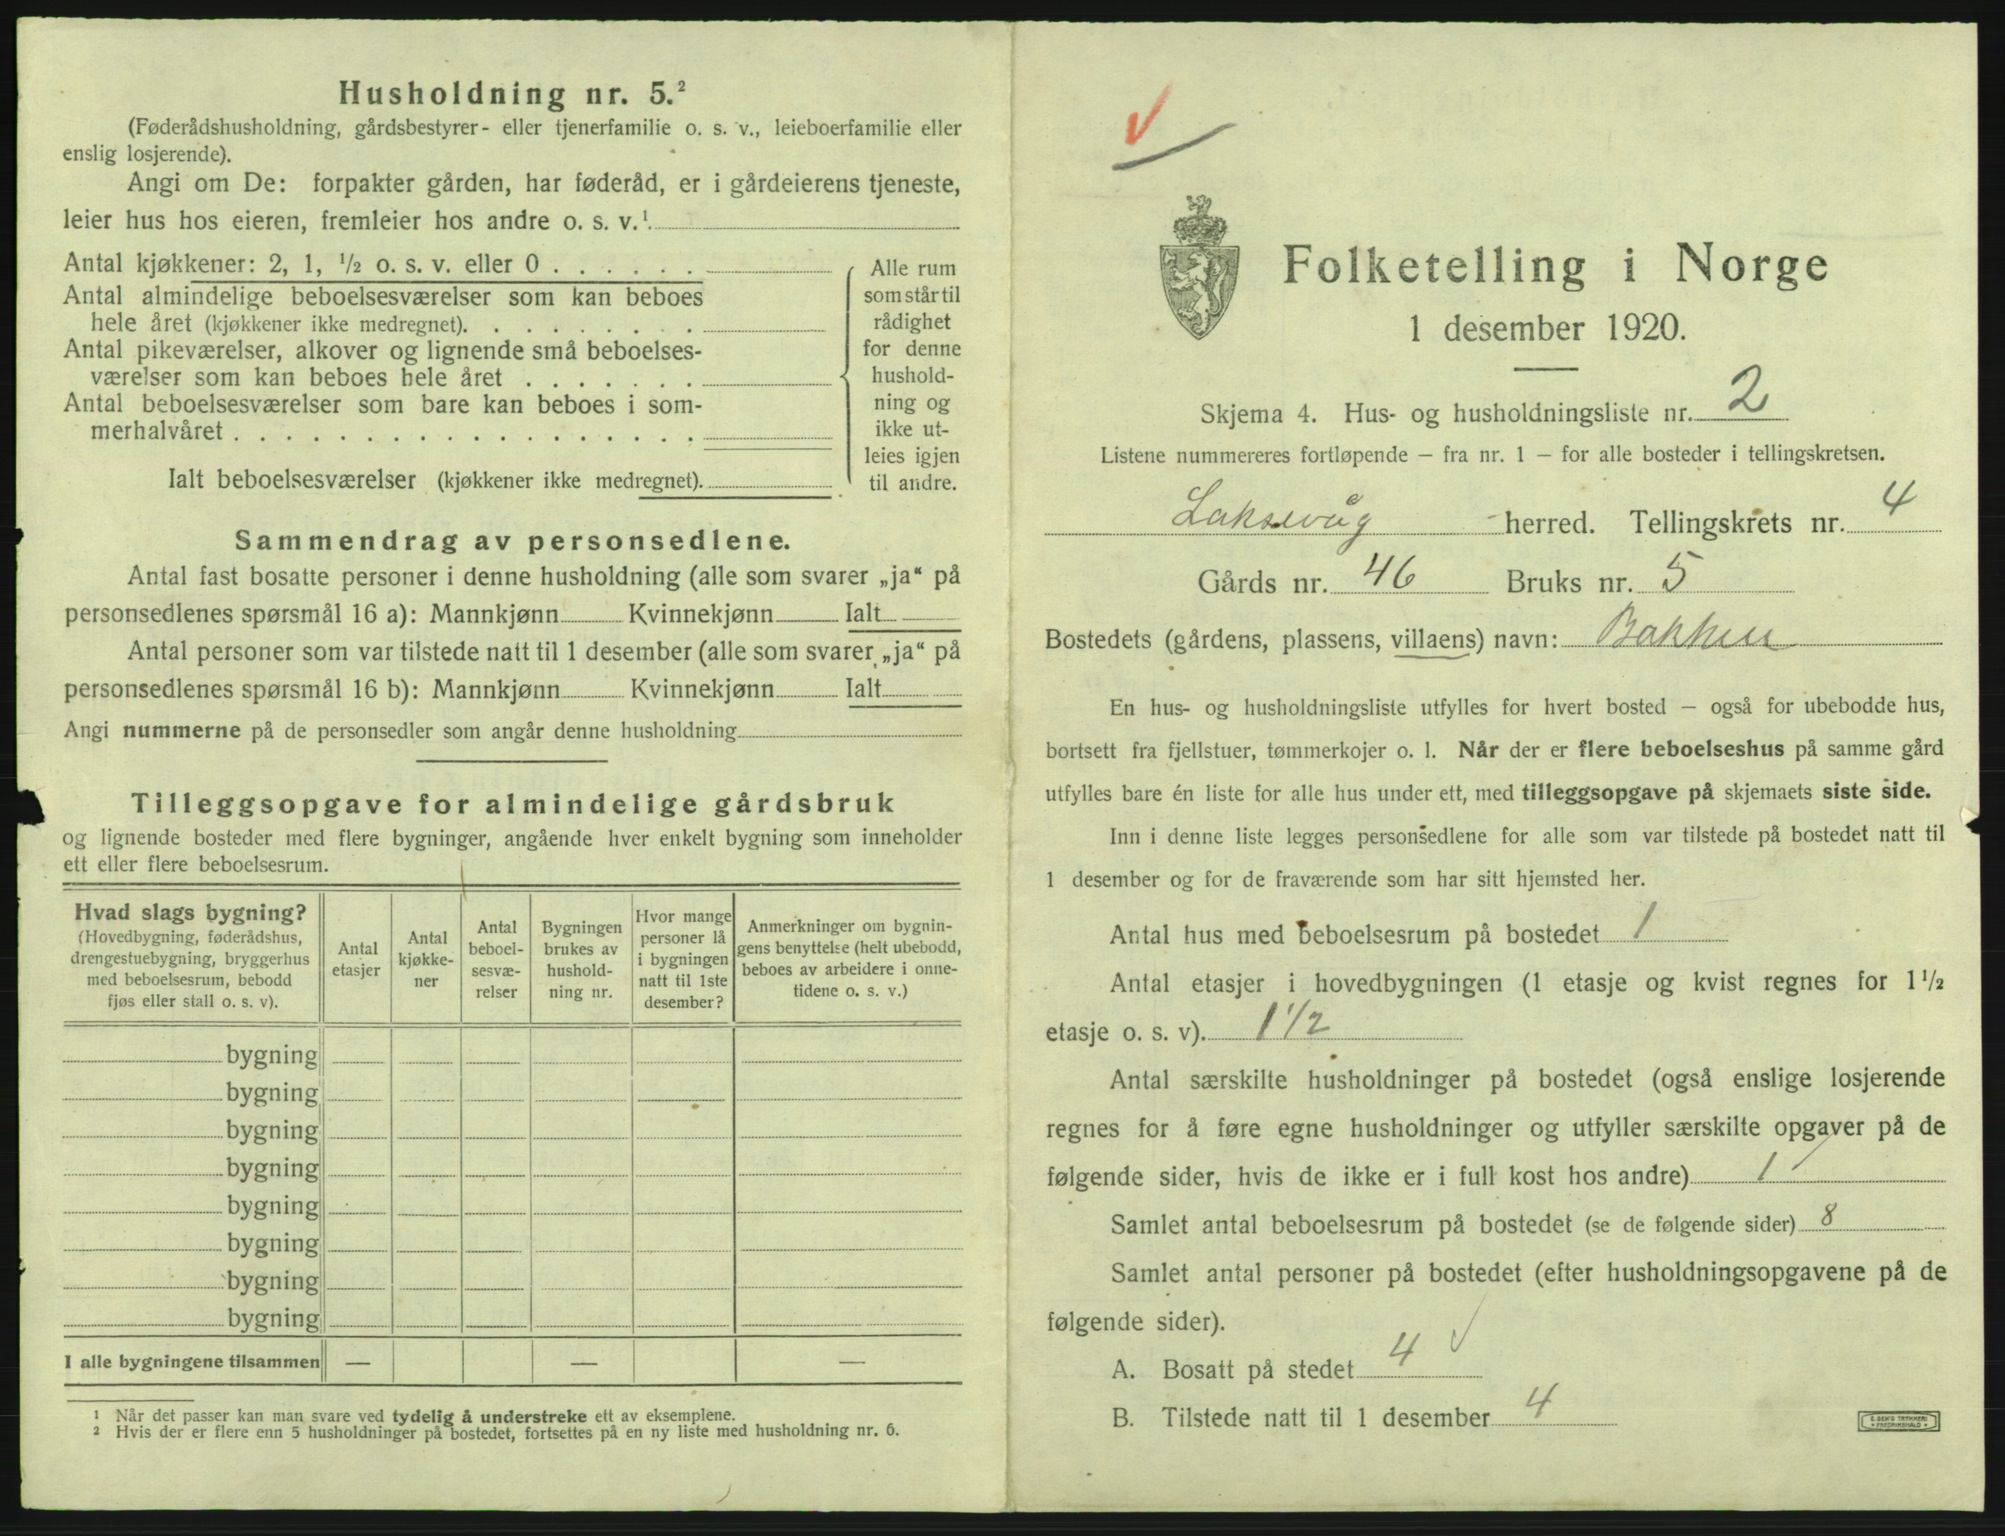 Husholdning nr. 5.²
(Føderådshusholdning, gårdsbestyrer- eller tjenerfamilie o. s. v., leieboerfamilie eller
enslig losjerende).
Angi om De: forpakter gården, har føderåd, er i gårdeierens tjeneste,
leier hus hos eieren, fremleier hos andre o. s. v.¹
Antal kjøkkener: 2, 1, ½ o. s. v. eller 0 . . . . . .
Antal almindelige beboelsesværelser som kan beboes
hele året (kjøkkener ikke medregnet). . . . . . . . .
Antal pikeværelser, alkover og lignende små beboelses-
værelser som kan beboes hele året . . . . . . .
Antal beboelsesværelser som bare kan beboes i som-
merhalvåret . . . . . . . . . . . . . . . . . .
Ialt beboelsesværelser (kjøkkener ikke medregnet).
Alle rum
som står til
rådighet
for denne
hushold-
ning og
ikke ut-
leies igjen
til andre.
Sammendrag av personsedlene.
Antal fast bosatte personer i denne husholdning (alle som svarer „ja“ på
personsedlenes spørsmål 16 a): Mannkjønn Kvinnekjønn Ialt
Antal personer som var tilstede natt til 1 desember (alle som svarer „ja“ på
personsedlenes spørsmål 16 b): Mannkjønn Kvinnekjønn Ialt
Angi nummerne på de personsedler som angår denne husholdning
Tilleggsopgave for almindelige gårdsbruk
og lignende bosteder med flere bygninger, angående hver enkelt bygning som inneholder
ett eller flere beboelsesrum.
Hvad slags bygning?
(Hovedbygning, føderådshus,
drengestuebygning, bryggerhus
med beboelsesrum, bebodd
fjøs eller stall o. s. v).
Antal
etasjer
Antal
kjøkke-
ner
Antal
beboel-
sesvæ-
relser
Bygningen
brukes av
hushold-
ning nr.
Hvor mange
personer lå
i bygningen
natt til 1ste
desember?
Anmerkninger om bygnin-
gens benyttelse (helt ubebodd,
beboes av arbeidere i onne-
tidene o. s. v.)
bygning
bygning
bygning
bygning
bygning
bygning
bygning
bygning
I alle bygningene tilsammen — — —
¹ Når det passer kan man svare ved tydelig å understreke ett av eksemplene.
² Hvis der er flere enn 5 husholdninger på bostedet, fortsettes på en ny liste med husholdning nr. 6.
Folketelling i Norge
1 desember 1920.
Skjema 4. Hus- og husholdningsliste nr. 2
Listene nummereres fortløpende – fra nr. 1 – for alle bosteder i tellingskretsen.
Laksevåg herred. Tellingskrets nr. 4
Gårds nr. 46 Bruks nr. 5
Bostedets (gårdens, plassens, villaens) navn: Bakken
En hus- og husholdningsliste utfylles for hvert bosted – også for ubebodde hus,
bortsett fra fjellstuer, tømmerkojer o. l. Når der er flere beboelseshus på samme gård
utfylles bare én liste for alle hus under ett, med tilleggsopgave på skjemaets siste side.
Inn i denne liste legges personsedlene for alle som var tilstede på bostedet natt til
1 desember og for de fraværende som har sitt hjemsted her.
Antal hus med beboelsesrum på bostedet 1
Antal etasjer i hovedbygningen (1 etasje og kvist regnes for 1½
etasje o. s. v). 1 1/2
Antal særskilte husholdninger på bostedet (også enslige losjerende
regnes for å føre egne husholdninger og utfyller særskilte opgaver på de
følgende sider, hvis de ikke er i full kost hos andre) 1
Samlet antal beboelsesrum på bostedet (se de følgende sider) 8
Samlet antal personer på bostedet (efter husholdningsopgavene på de
følgende sider).
A. Bosatt på stedet 4
B. Tilstede natt til 1 desember 4